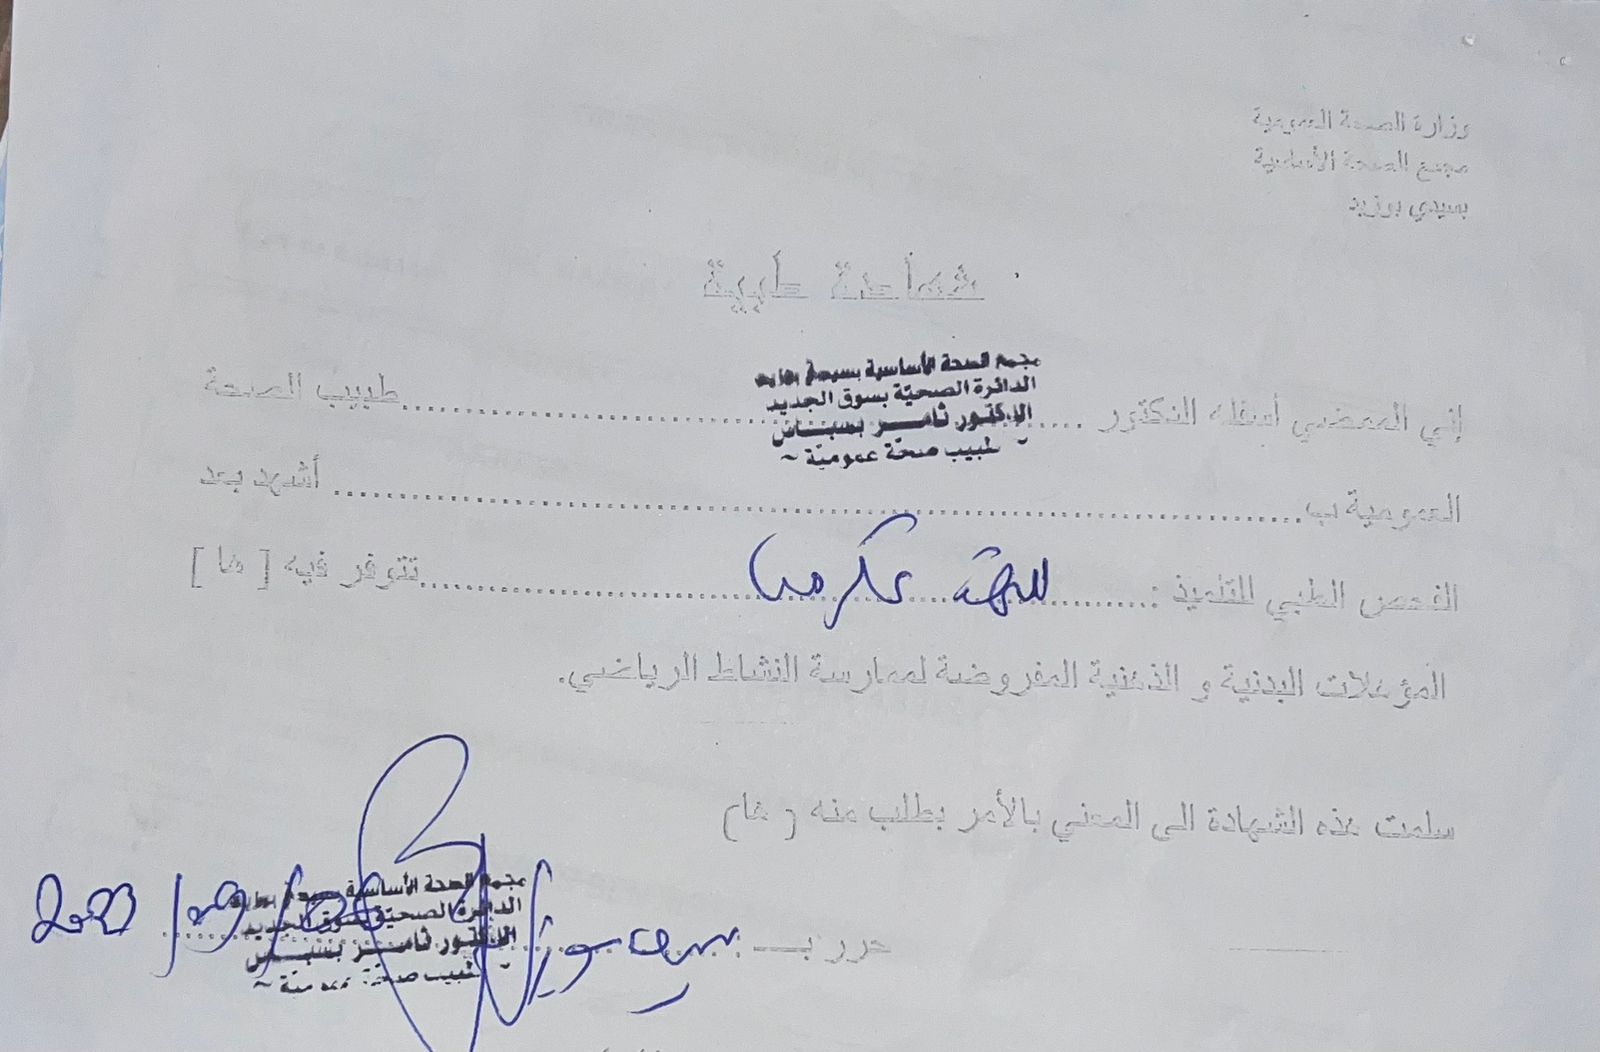 وزارة الصحة العمومية
مجمع الصحة الأساسية
بسيدي بوزيد
شهادة طبية
مجمع الصحة الأساسية بسيدي بوزيد
الدائرة الصحيّة بسوق الجديد
الدكتور ثامر بصباص
طبيب صحة عمومية
إني الممضي أسفله الدكتور ........ طبيب الصحة
العمومية ب........ أشهد بعد
الفحص الطبي للتلميذ : ........ عكرمي ........ تتوفر فيه [ ها ]
المؤهلات البدنية و الذهنية المفروضة لممارسة النشاط الرياضي.
سلمت هذه الشهادة الى المعني بالأمر بطلب منه ( ها)
حرر بـ
مجمع الصحة الأساسية بسيدي بوزيد
الدائرة الصحيّة بسوق الجديد
الدكتور ثامر بصباص
طبيب صحة عمومية